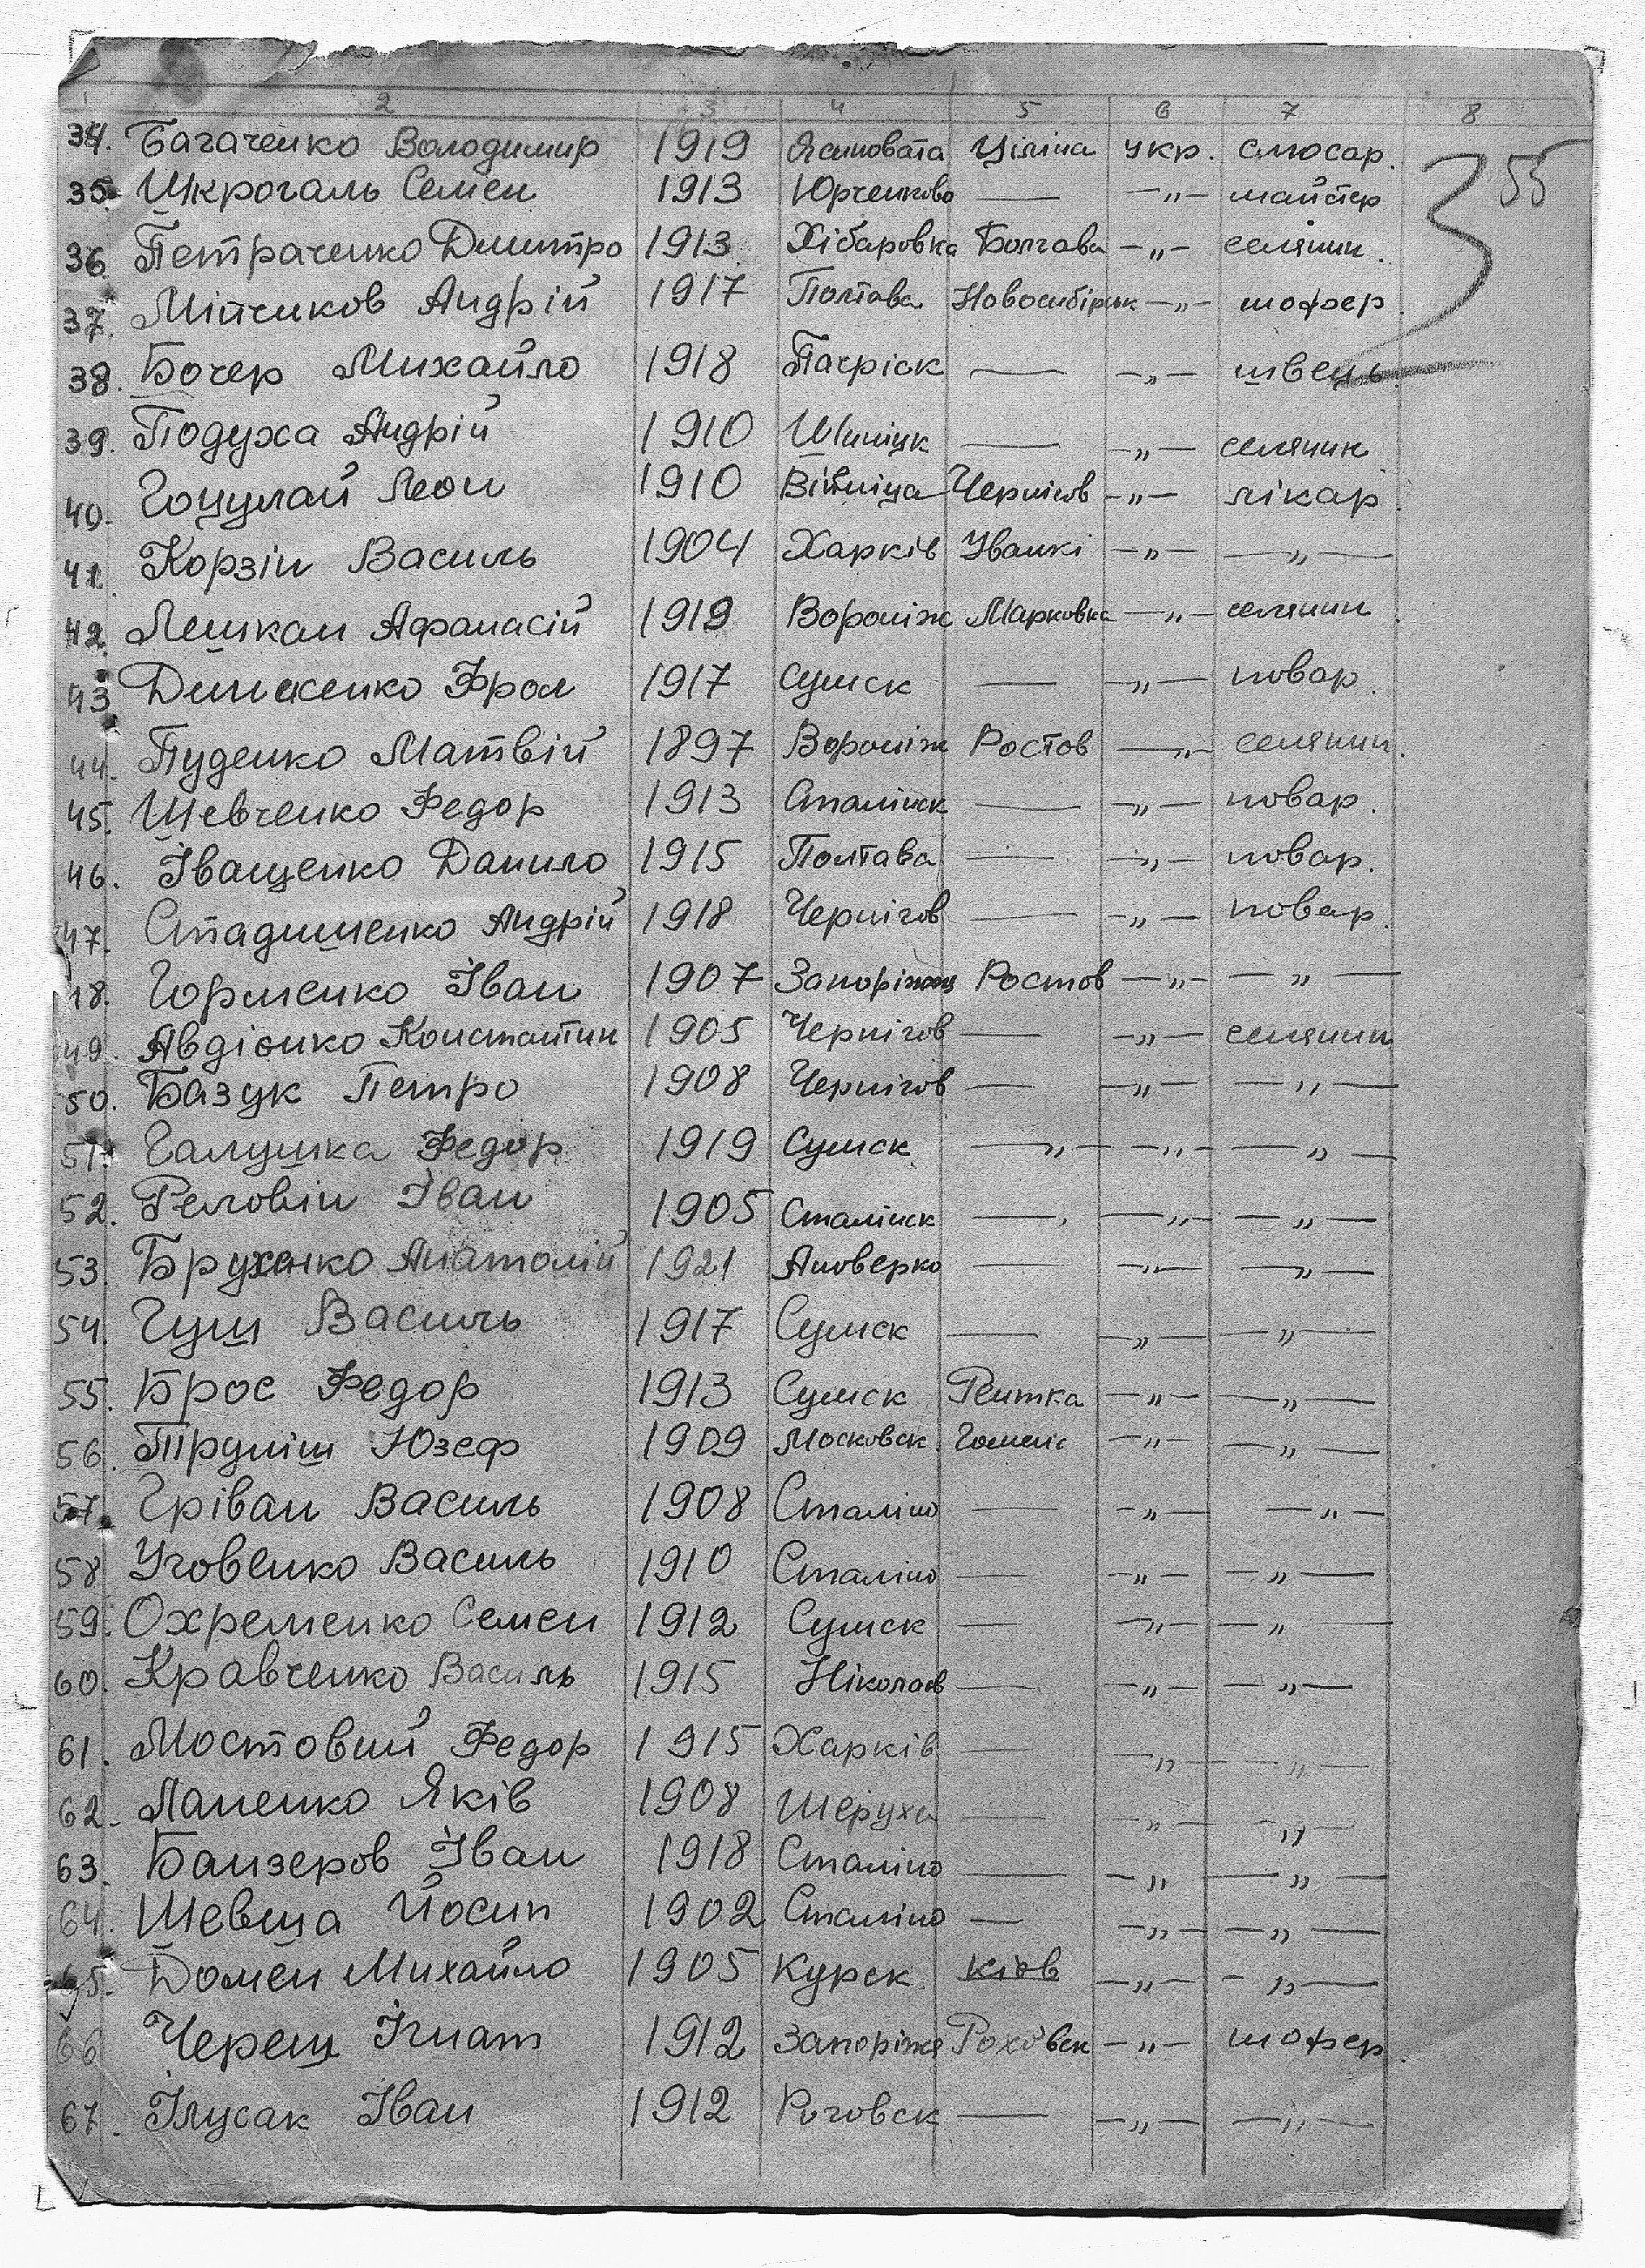 1 2 3 4 5 6 7 8
55
34. Багаченко Володимир 1919 Ясиновата Уіліна укр. слюсар.
35. Шкрогаль Семен 1913 Юрченково — —„— майстер
36. Петраченко Дмитро 1913 Хібаровка Болгава —„— селянин.
37. Мінчиков Андрій 1917 Полтава Новосибірик —„— шофер
38. Бочер Михайло 1918 Пагріск — —„— швець
39. Подуха Андрій 1910 — —„— селянин
40. Гоцулай Леон 1910 Вінніца Чернігов —„— лікар
41. Корзін Василь 1904 Харків Уванкі —„— —„—
42. Лешкан Афанасій 1919 Вороніж Марковка —„— селянин
43. Фрол 1917 Сумск — —„— повар.
44. Пуденко Матвій 1897 Вороніж Ростов —„— селянин.
45. Шевченко Федор 1913 Сталінск — —„— повар.
46. Іващенко Данило 1915 Полтава — —„— повар.
47. Андрій 1918 Чернігов — —„— повар.
48. Горменко Іван 1907 Ростов —„— —„—
49. Авдієнко Константин 1905 Чернігов — —„— селянин
50. Базук Петро 1908 Чернігов — —„— —„—
51. Галушка Федор 1919 Сумск —„— —„— —„—
52. Реловін Іван 1905 Сталінск — —„— —„—
53. Брухенко Анатолій 1921 Яноверко — —„— —„—
54. Гущ Василь 1917 Сумск — —„— —„—
55. Брос Федор 1913 Сумск Рештка —„— —„—
56. Юзеф 1909 Московск. Гомеліс —„— —„—
57. Гріван Василь 1908 Сталіно — —„— —„—
58. Уговенко Василь 1910 Сталіно — —„— —„—
59. Охременко Семен 1912 Сумск — —„— —„—
60. Кравченко Василь 1915 Ніколаєв — —„— —„—
61. Мостовий Федор 1915 Харків — —„— —„—
62. Лапенко Яків 1908 Шеруха — —„— —„—
63. Банзеров Іван 1918 Сталіно — —„— —„—
64. Шевша Йосип 1902 Сталіно — —„— —„—
65. Домен Михайло 1905 Курск Кієв —„— —„—
66 Череш Ігнат 1912 Запоріже —„— шофер.
67. Ілусак Іван 1912 Роговск — —„— —„—